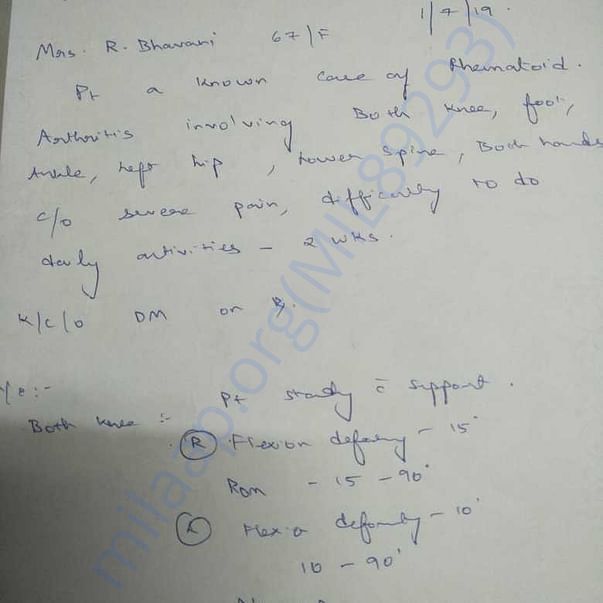 1/7/19.
Mrs. R. Bhavani 67/F
Pt a known case of Rhematoid.
Arthritis involving Both knee, foot,
Ankle, Left hip, Lower Spine, Both hands
c/o severe pain, difficulty to do
daily activities - 2 wks.
K/C/O DM on Rx.
O/e :-
Pt steady c̄ support.
Both knee :-
(R) Flexion deformity - 15°
ROM - 15 - 90°
(L) Flexion deformity - 10°
10 - 90°
milaap.org(MIL89293)